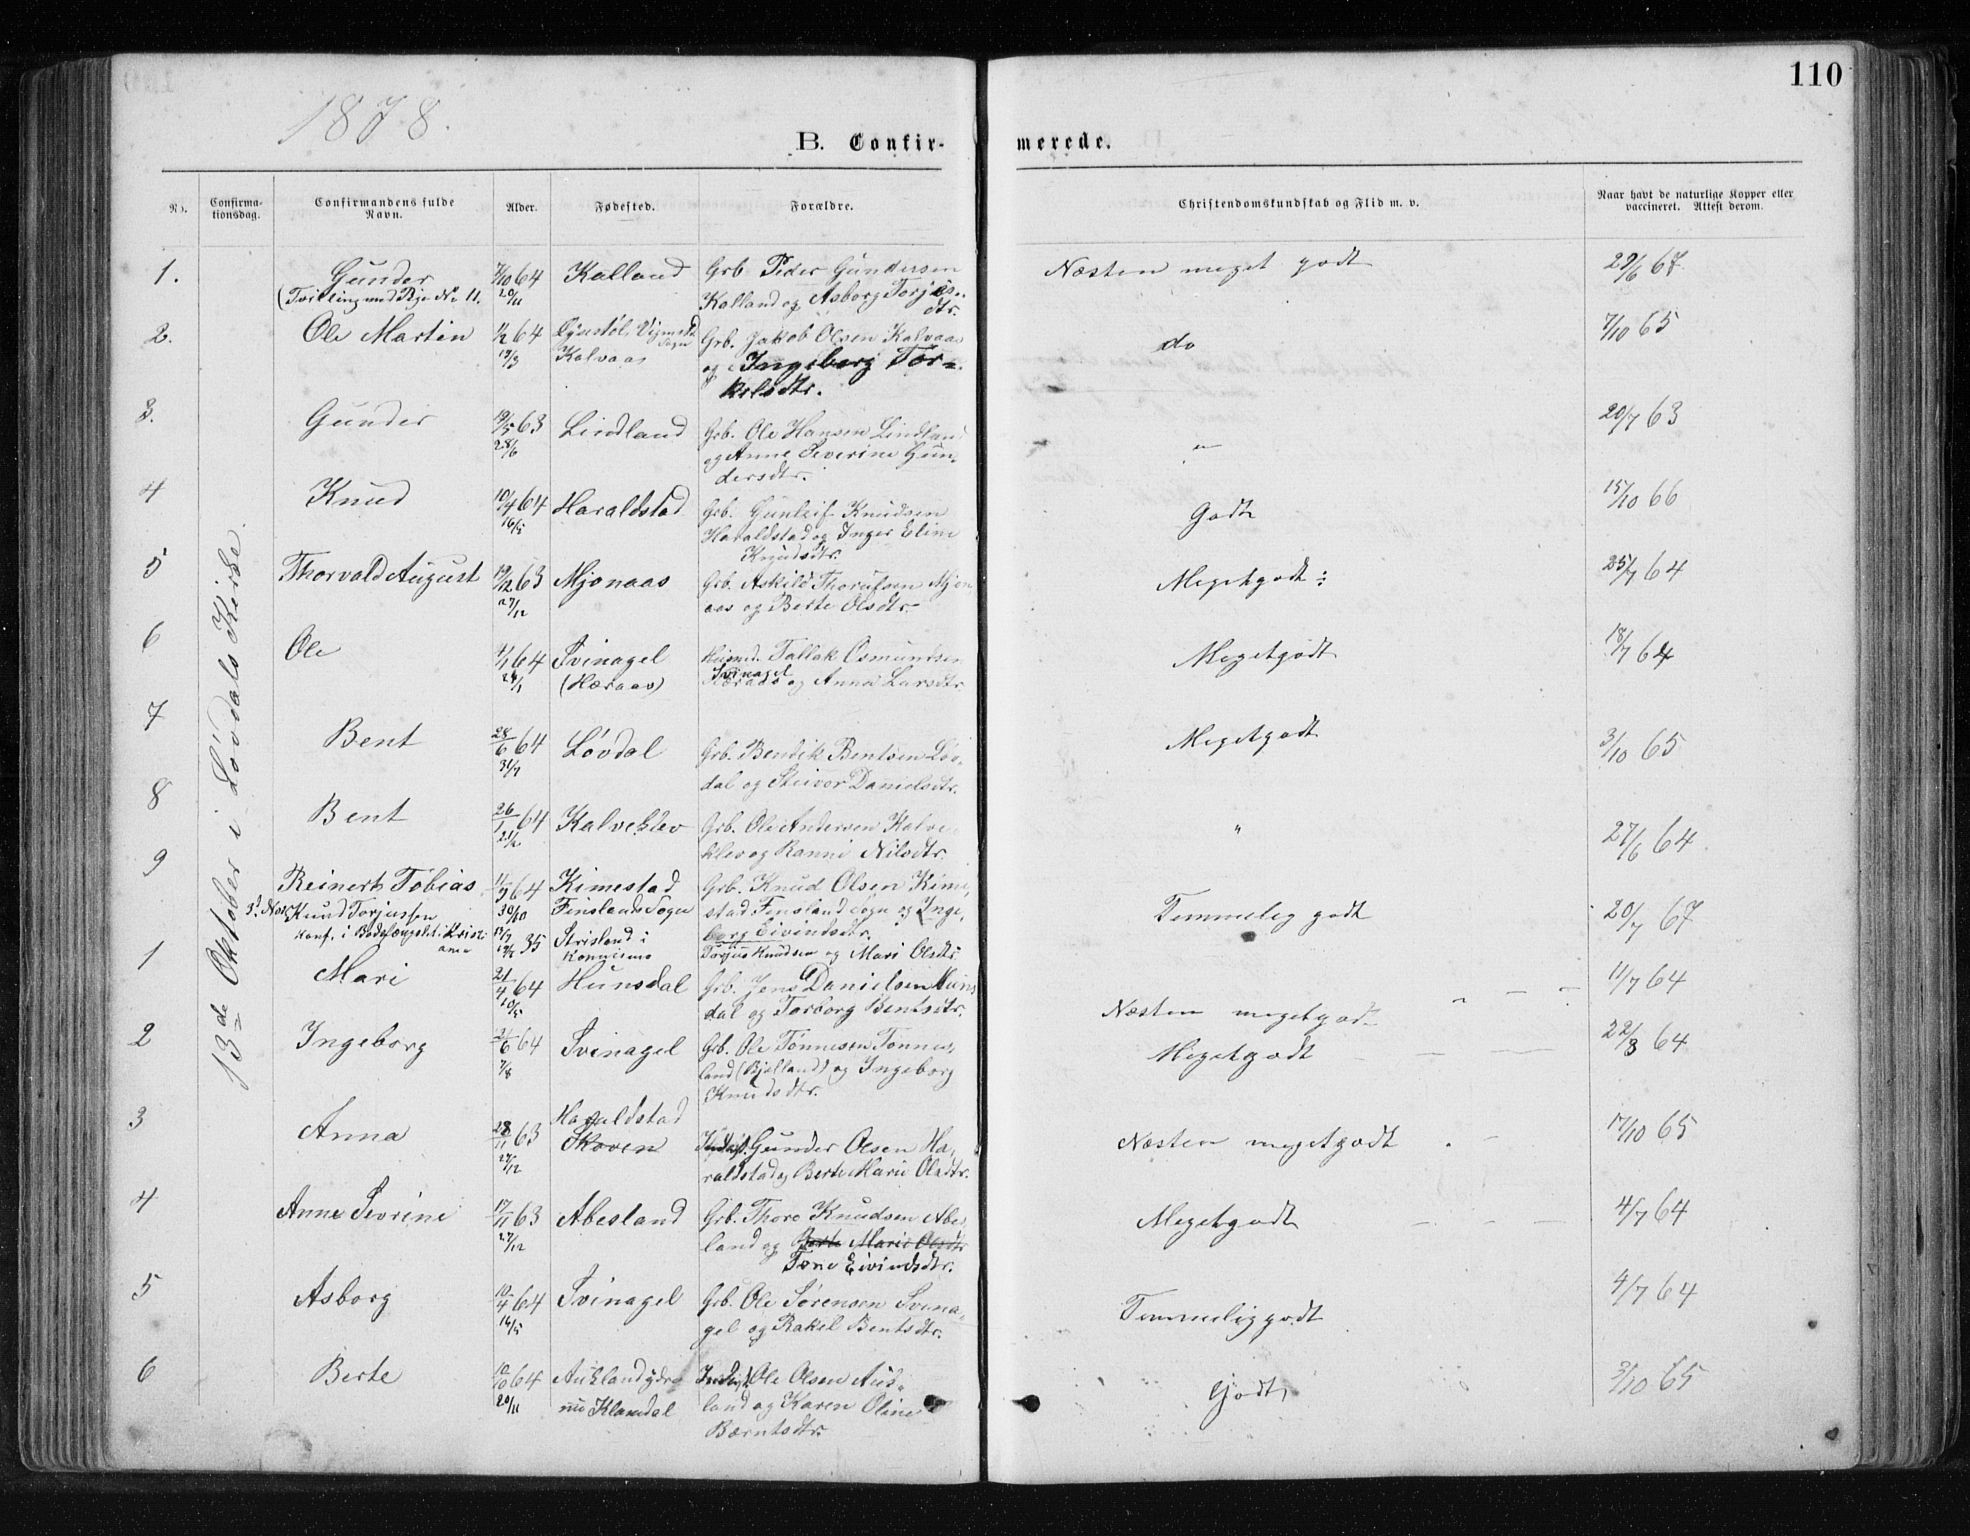 110
1878.
B. Confirmerede.
No. Confirmationsdag. Confirmandens fulde Navn. Alder. Fødested. Forældre. Christendomskundskab og Flid m. v. Naar havt de naturlige Kopper eller vaccineret. Attest derom.
13de Oktober i Løvdals Kirke.
1. Gunder 7/10 64 Kalland Grb. Peder Gundersen Næsten meget godt 29/6 67
(Tvilling med Pige No. 11. 20/11 Kalland og Asborg Torjes-
dtr.
2. Ole Martin 1/2 64 Vigmostad Sogn Grb. Jakob Olsen Kalvaas do 7/10 65
19/3 Kalvaas og Ingeborg Tor-
kelsdtr.
3. Gunder 19/5 63 Lindland Grb. Ole Hansen Lindland " 20/7 63
28/6 og Anne Severine Gun-
dersdtr.
4 Knud 10/4 64 Haraldstad Grb. Gunleif Knudsen Godt 15/10 66
16/5 Haraldstad og Inger Eline
Knudsdtr.
5 Thorvald August 19/12 63 Mjonaas Grb. Askild Thorulsen Mjon Megetgodt: 25/7 64
27/12 aas og Berte Olsdtr.
6 Ole 4/1 64 Svinagel Tallak Osmundsen Megetgodt 18/7 64
24/1 (Hæraas) Svinagel og Anne Larsdtr.
7 Bent 28/6 64 Løvdal Grb. Bendik Bentsen Løv- Megetgodt 3/10 65
31/7 dal og Steivor Danielsdtr.
8 Bent 26/1 64 Kalveklev Grb. Ole Andersen Kalve " 27/6 64
21/2 klev og Ranni Nilsdtr.
9 Reinert Tobias 64 Kimestad Grb. Knud Olsen Kime Temmelig godt 20/7 67
30/10 Finslands Sogn stad Finsland Sogn og Inge-
borg Eivindsdtr.
Knud Torjussen 35 Strisland i Torjus Knudsen og Mari Olsdtr.
Konf. i Bodsfængslet i Kristi
ania
1 Mari 21/4 64 Hunsdal Grb. Jens Danielsen Huns Næsten megetgodt 11/7 64
10/5 dal og Torborg Bentsdtr.
2 Ingeborg 64 Svinagel Grb. Ole Tønnesen Tønnes- Megetgodt 22/8 64
7/8 land (Bjelland) og Ingeborg
Knudsdtr.
3 Anna 28/11 63 Haraldstad Gunder Olsen Ha- Næsten megetgodt 17/10 65
27/12 Skoven raldstad og Berte Marie Olsdtr.
4 Anne Sevrine 17/11 63 Abesland Grb. Thore Knudsen Abes Megetgodt 4/7 64
27/12 land og Berte Marie Olsdtr
Tone Eivindsdtr.
5 Asborg 10/4 64 Svinagel Grb. Ole Sørensen Svina- Temmelig godt 4/7 64
16/5 gel og Rakel Bentsdtr.
6 Berte 10/10 64 Auklandydre Ole Olsen Auk- Godt 3/10 65
20/11 nu Klamdal land og Karen Oline
Bærntsdtr.